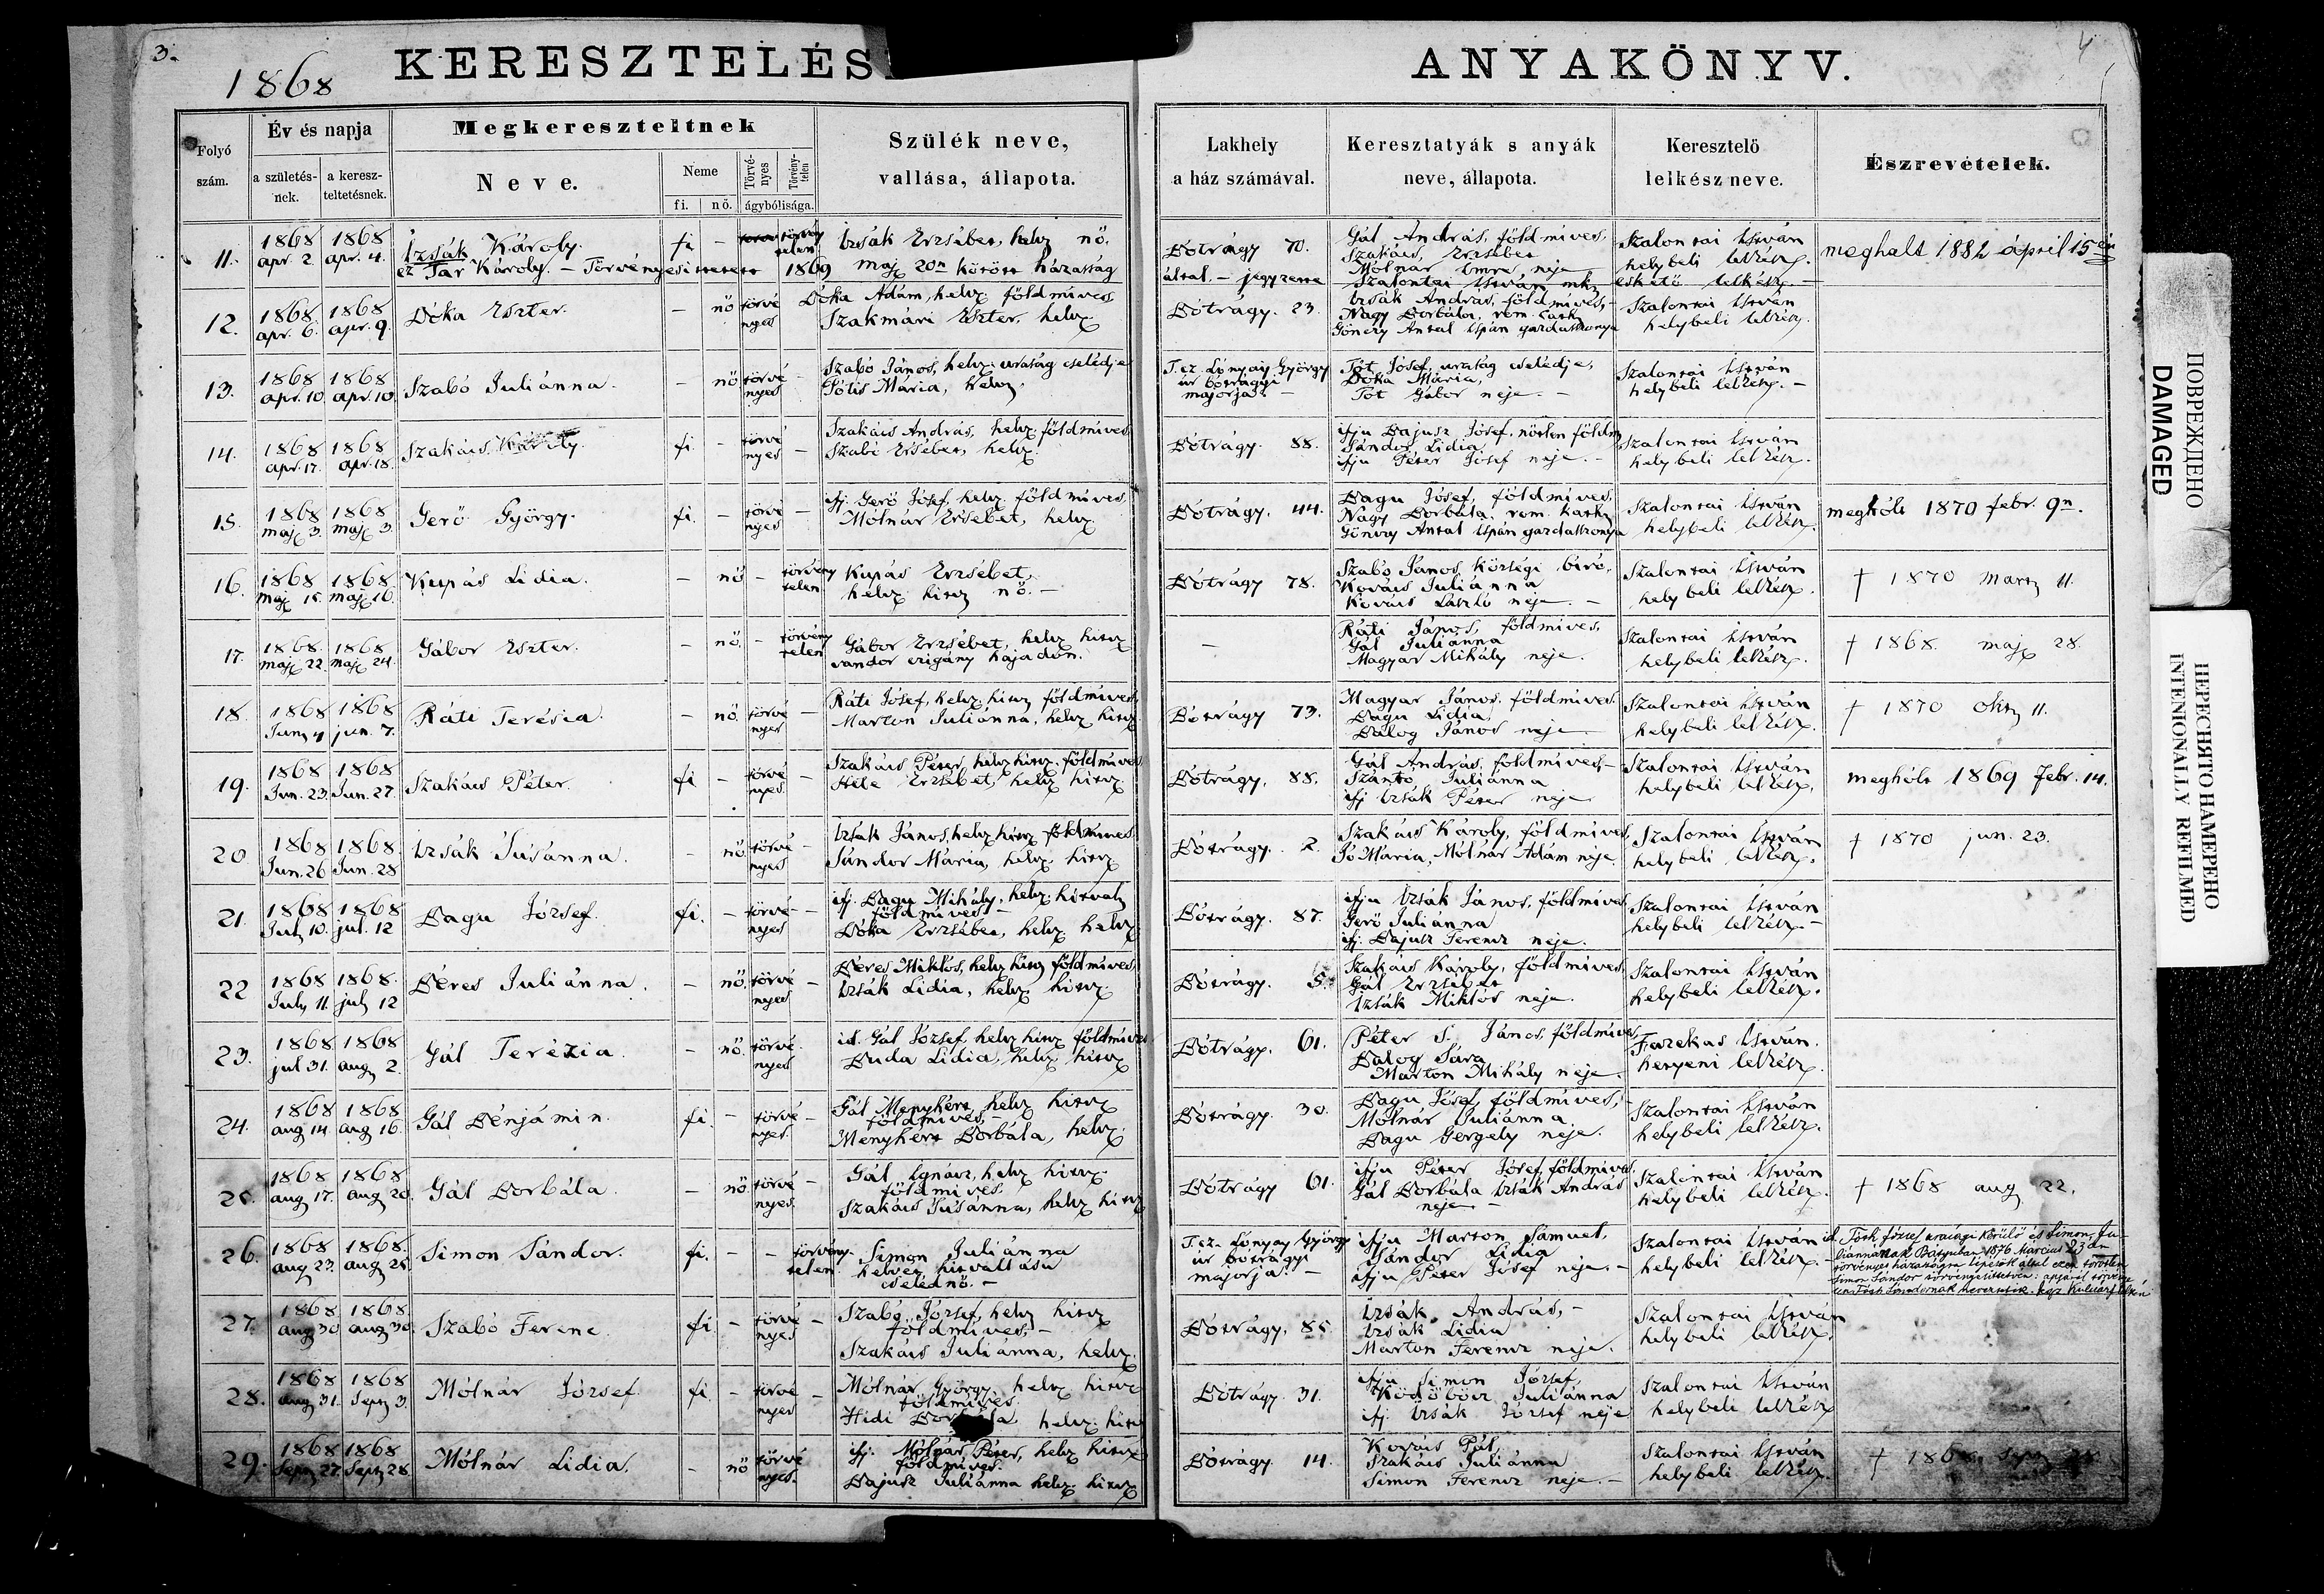 3.
1868
KERESZTELÉS
ANYAKÖNYV.
4
Folyó szám.
Év és napja
a születés-nek.
a keresz-teltetésnek.
Megkereszteltnek
Neve.
Neme
fi.
nő.
Törvé-nyes
Törvény-telen
ágybólisága.
Szülék neve,
vallása, állapota.
Lakhely
a ház számával.
Keresztatyák s anyák
neve, állapota.
Keresztelő
lelkész neve.
Észrevételek.
11. 1868 apr. 2. 1868 apr. 4. Izsák Károly. fi - törvény telen Izsák Erzsébet, helv. nő. Bótrágy 70. Gál András, földmives, Szakács, Erzsébet Mólnár Imre neje Szalontai István helybeli lelkész. meghalt 1882 április 15én
ez Tar Károly. - Törvényesíttetett 1869 maj. 20n kötött házasság által. - jegyzette Szalontai István mk. eskető lelkész. -
12. 1868 apr. 6. 1868 apr. 9. Dóka Eszter. - nő törvé nyes Dóka Ádám, helv. földmives Szakmári Eszter, helv. Bótrágy. 23. Izsák András, földmives, - Nagy Borbála, rom. kath. Gönczy Antal ispán gazdasszonya Szalontai István helybeli lelkész.
13. 1868 apr. 10 1868 apr. 10 Szabó Juliánna. - nő törvé nyes Szabó János, helv. uraság cselédje Mária, helv. T. cz. Lónyay György úr bótrágyi majorja. - Tót Jósef, uraság cselédje, Dóka Mária, Tót Gábor neje. - Szalontai István helybeli lelkész. -
14. 1868 apr. 17. 1868 apr. 18. Szakács Károly. fi. - törvé nyes - Szakács András, helv. földmives Szabó Ersébet, helv. Bótrágy. 88. ifju Bajusz Jósef. nőtlen földm. Sándor Lidia. ifju Péter Jósef neje. - Szalontai István helybeli lelkész.
15. 1868 maj. 3. 1868 maj. 3 Gerő György. fi. - törvé nyes - ifj. Gerő Jósef, helv. földmives. Mólnár Ersébet, helv. Bótrágy. 44. Bagu Jósef, földmives, Nagy Borbála. rom. kath. Gönczy Antal ispán gazdasszonya Szalontai István helybeli lelkész. meghólt 1870 febr. 9n.
16. 1868 maj. 15. 1868 maj. 16. Kupás Lidia. - nő - törvény telen Kupás Erzsébet, helv. hitv. nő. - Bótrágy 78. Szabó János községi biró. Kovács Juliánna Kovács László neje. - Szalontai István helybeli lelkész. † 1870 Mart. 11.
17. 1868. maj. 22. 1868 maj. 24. Gábor Eszter. - nő. - törvény telen Gábor Erzsébet, helv. hitv. vándor czigány hajadon. - Ráti János, földmives, Gál Juliánna Magyar Mihály neje. Szalontai István helybeli lelkész. † 1868. maj. 28.
18. 1868 Jun. 4 1868 jun. 7. Ráti Terésia. - nő. törvé nyes - Ráti Jósef, helv. hitv. földmives, Marton Juliánna, helv. hitv. Bótrágy 73. Magyar János. földmives. Bagu Lidia, Balog János neje. Szalontai István helybeli lelkész. † 1870 Okt. 11.
19. 1868 Jun. 23. 1868 Jun. 27. Szakács Péter. fi - törvé nyes. - Szakács Péter, helv. hitv. földmives Hete Erzsébet, helv. hitv. Bótrágy. 88. Gál András, földmives, - Szántó Juliánna ifj Izsák Péter neje Szalontai István helybeli lelkész. meghólt 1869 Febr. 14.
20. 1868 Jun. 26 1868. Jun. 28 Izsák Susánna. - nő. törvé nyes - Izsák János, helv. hitv. földmives. Sándor Mária, helv. hitv. Bótrágy. 2. Szakács Károly, földmives, Jó Mária, Mólnár Ádám neje Szalontai István helybeli lelkész. † 1870 jun. 23.
21. 1868 Jul. 10. 1868 jul. 12 Bagu József. fi. - törvé nyes - ifj. Bagu Mihály, helv. hitvall. földmives - Dóka Erzsébet, helv. helv. Bótrágy. 87. ifju Izsák János, földmives Gerő Juliánna ifj. Bajusz Ferencz neje. Szalontai István helybeli lelkész. -
22 1868 July 11. 1868. july 12 Béres Juliánna. - nő. törvé nyes - Béres Miklós, helv. hitv. földmives, Izsák Lidia, helv. hitv. Bótrágy. 5. Szakács Károly, földmives, Gál Erzsébet Izsák Miklós neje. Szalontai István helybeli lelkész.
23. 1868 jul 31. 1868 aug. 2. Gál Terézia. - nő. törvé nyes. id. Gál József helv. hitv. földmives Buda Lidia, helv. hitv. Bótrágy. 61. Péter S. János, földmives, Balog Sára Marton Mihály neje. Fazekas István. hetyeni lelkész.
24. 1868 aug 14. 1868 aug 16. Gál Bénjámin. fi. - törvé nyes. - Gál Menyhért helv. hitv. földmives, - Menyhért Borbála, helv. Bótrágy. 30. Bagu Jósef, földmives, - Mólnár Juliánna Bagu Gergely neje. Szalontai István helybeli lelkész.
25. 1868 aug 17. 1868 aug 20. Gál Borbála. - nő. törvé nyes. - Gál Ignácz, helv. hitv. földmives. Szakács Susánna, helv. hitv. Bótrágy 61. ifju Péter Jósef, földmives. Gál Borbála Izsák András neje - Szalontai István helybeli lelkész. † 1868 aug. 22.
26. 1868 aug 23. 1868. aug. 25. Simon Sándor. fi. - - törvény-telen. Simon Juliánna helvét hitvallású cselédnő. - T. cz. Lónyay György úr bótrágyi majorja. - ifju Marton Sámuel, Sándor Lidia ifju Péter Jósef neje. - Szalontai István helybeli lelkész. - id. Tóth József urasági kerülő és Simon Juliannának Bátyuban 1876 Március 23án törvényes házasságra lépésök által ezen törvtlen Simon Sándor törvényesíttetvén
27. 1868 aug 30 1868. aug 30. Szabó Ferenc fi - törvé nyes - Szabó József, helv. hitv. földmives, - Szakács Juliánna, helv. Bótrágy. 85. Izsák András, - Izsák Lidia Marton Ferencz neje. Szalontai István helybeli lelkész.
28. 1868 aug 31. 1868 Sept 3. Mólnár József fi. - törvé nyes - Mólnár György helv. hitv. földmives. Hidi helv. hitv. Bótrágy 31. ifju Simon József, Ködöböcz Juliánna ifj. Izsák József neje Szalontai István helybeli lelkész
29. 1868 Sept 27. 1868 Sept 28. Mólnár Lidia. - nő törvé nyes. ifj. Mólnár Péter, helv. hitv. földmives. Bajusz Juliánna helv. hitv. Bótrágy 14. Kovács Pál, Szakács Juliánna Simon Ferencz neje. - Szalontai István helybeli lelkész. † 1868. Sept
ПОВРЕЖДЕНО
DAMAGED
ПЕРЕСНЯТО НАМЕРЕНО
INTENIONALLY REFILMED